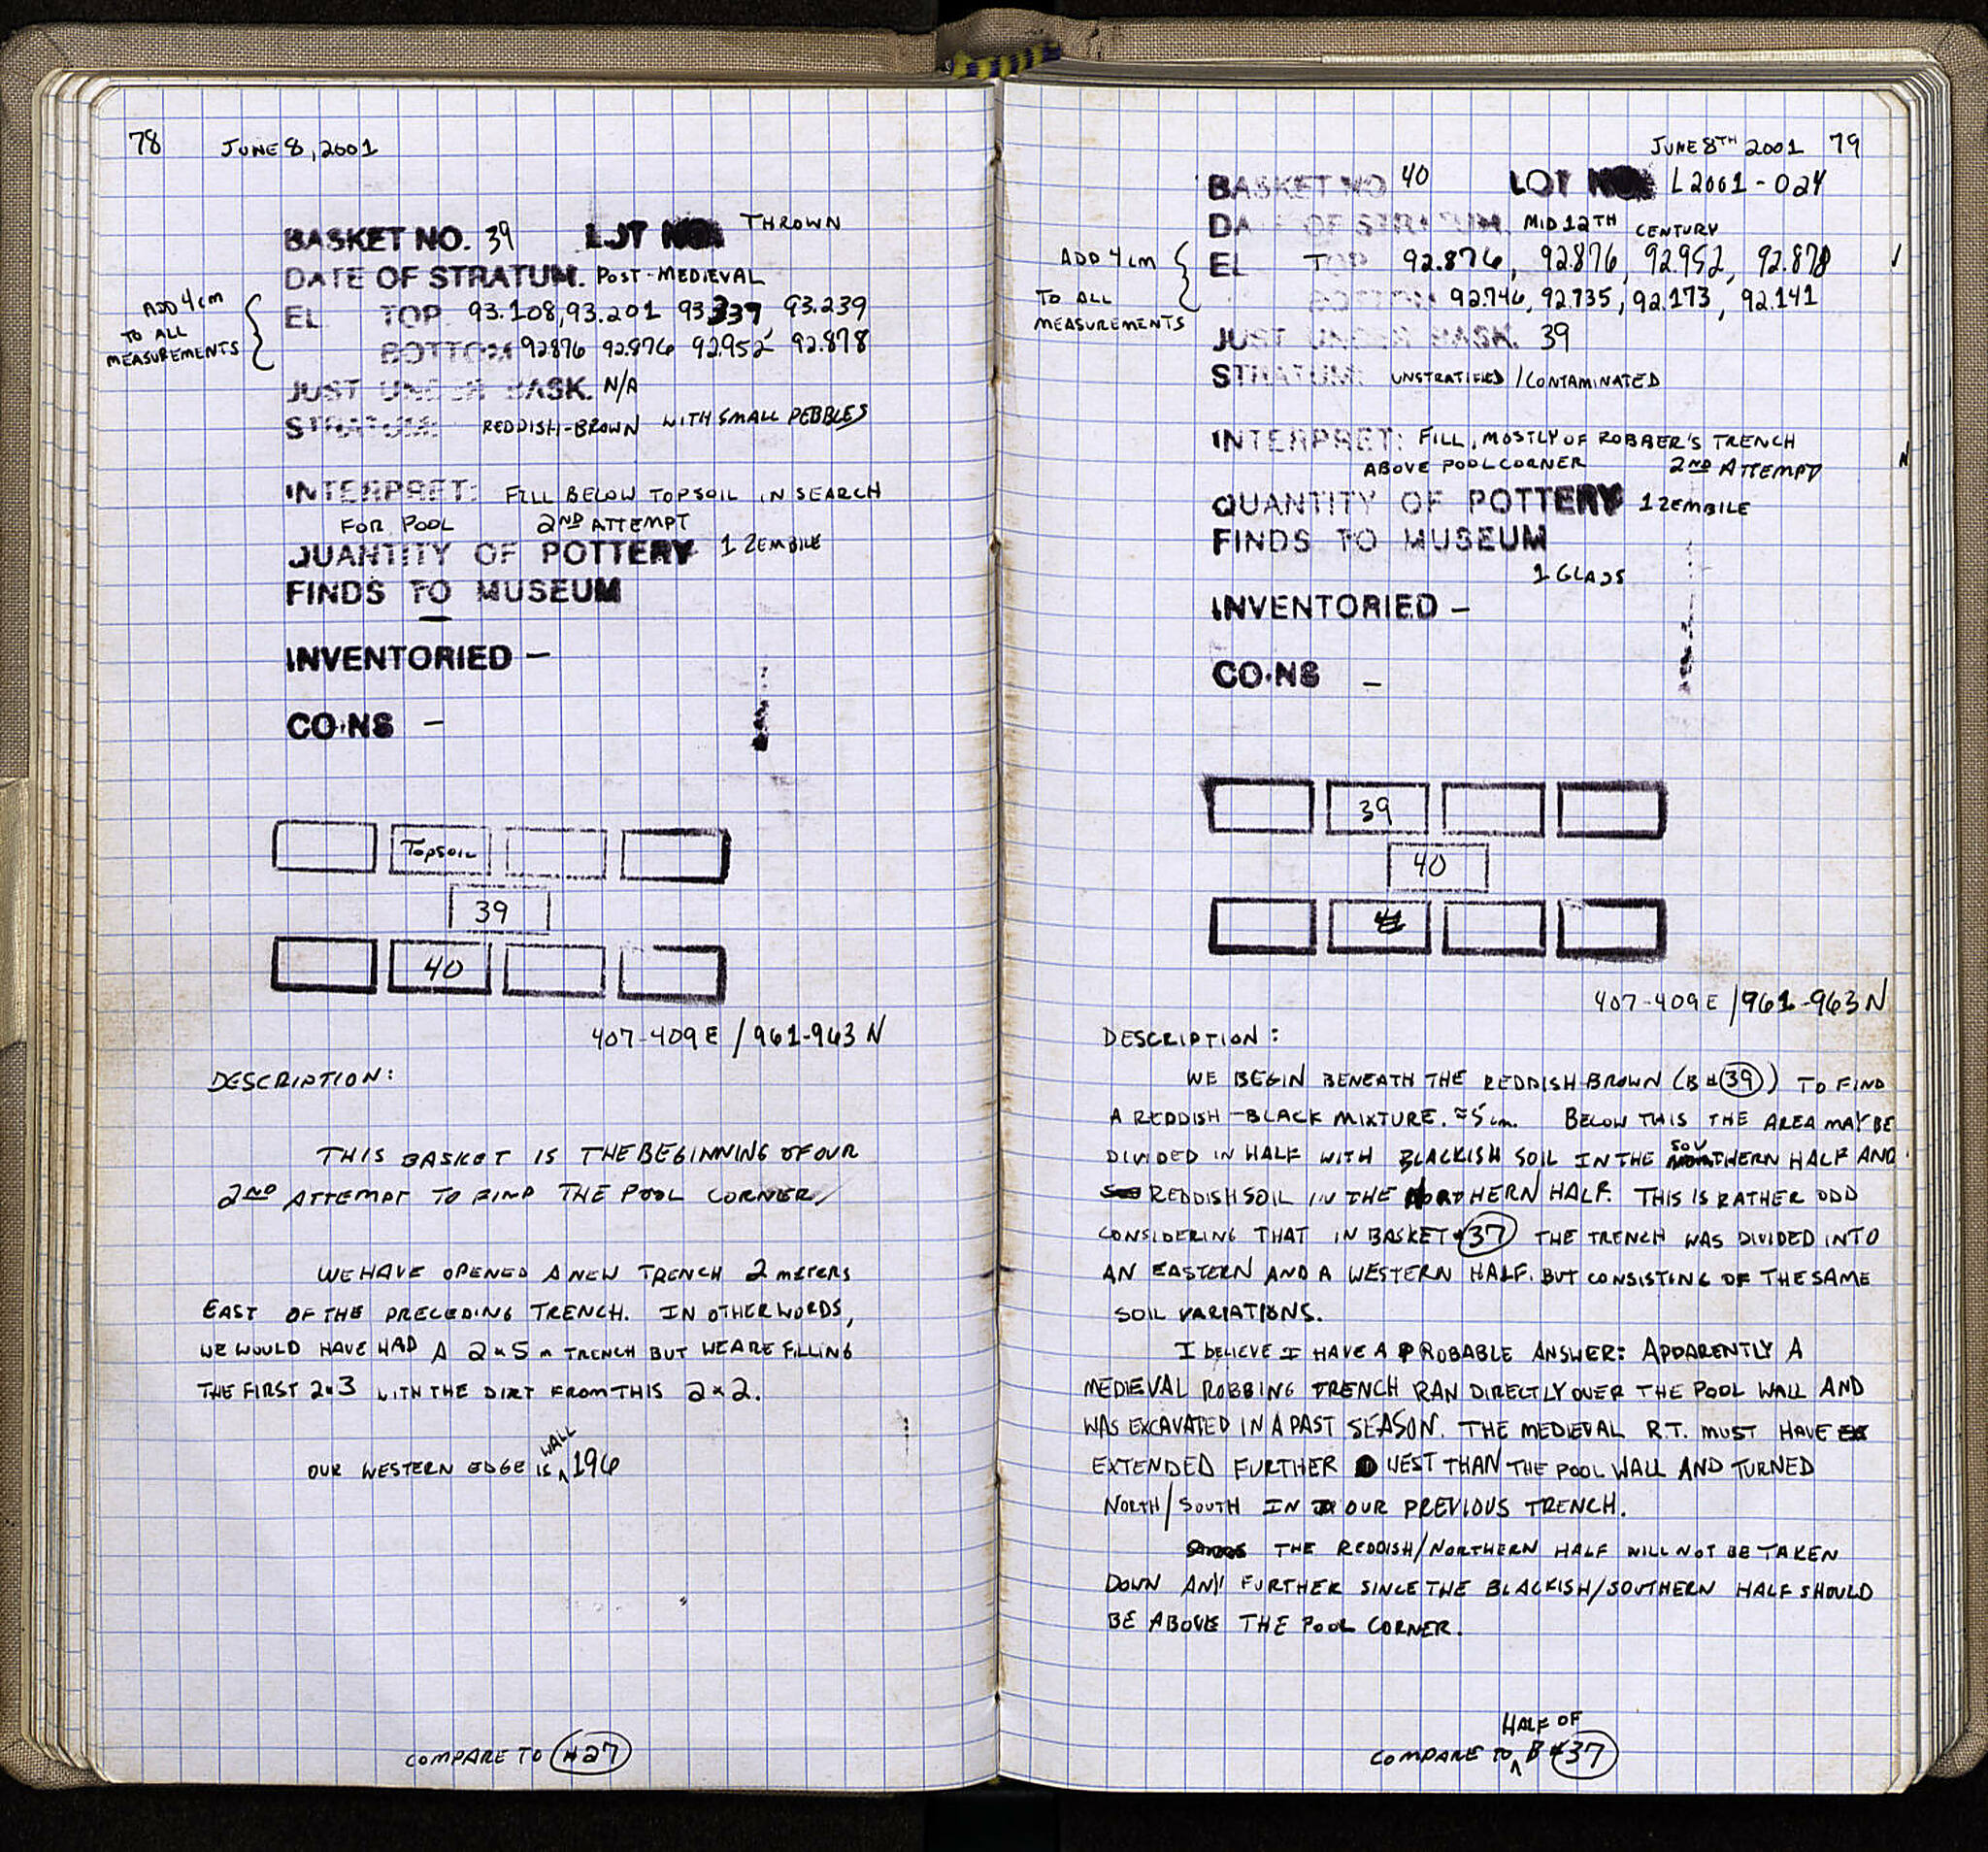 78 JUNE 8, 2001
BASKET NO. 39 LOT NO. THROWN
DATE OF STRATUM. POST-MEDIEVAL
ADD 4cm
TO ALL
MEASUREMENTS
EL. TOP. 93.108, 93.201 93.339, 93.239
BOTTOM 92.876 92.876 92.952 92.878
JUST UNDER BASK. N/A
STRATUM: REDDISH-BROWN WITH SMALL PEBBLES
INTERPRET: FILL BELOW TOPSOIL IN SEARCH
FOR POOL 2ND ATTEMPT
QUANTITY OF POTTERY 1 ZEMBILE
FINDS TO MUSEUM
—
INVENTORIED –
COINS –
TOPSOIL
39
40
407-409 E / 961-963 N
DESCRIPTION:
THIS BASKET IS THE BEGINNING OF OUR
2ND ATTEMPT TO FIND THE POOL CORNER,
WE HAVE OPENED A NEW TRENCH 2 meters
EAST OF THE PRECEDING TRENCH. IN OTHER WORDS,
WE WOULD HAVE HAD A 2x5 m TRENCH BUT WE ARE FILLING
THE FIRST 2x3 WITH THE DIRT FROM THIS 2x2.
OUR WESTERN EDGE IS WALL 196
COMPARE TO #27
JUNE 8TH 2001 79
BASKET NO 40 LOT NO. L2001-024
DATE OF STRATUM. MID 12TH CENTURY
ADD 4cm
TO ALL
MEASUREMENTS
EL TOP 92.876, 92.876, 92.952, 92.878 ✓
BOTTOM 92.746, 92.735, 92.173, 92.141
JUST UNDER BASK. 39
STRATUM: UNSTRATIFIED / CONTAMINATED
INTERPRET: FILL, MOSTLY OF ROBBER'S TRENCH
ABOVE POOL CORNER 2ND ATTEMPT
QUANTITY OF POTTERY 1 ZEMBILE
FINDS TO MUSEUM
1 GLASS
INVENTORIED –
COINS –
39
40
407-409 E / 961-963 N
DESCRIPTION:
WE BEGIN BENEATH THE REDDISH BROWN (B #39) TO FIND
A REDDISH-BLACK MIXTURE. ≈5 cm. BELOW THIS THE AREA MAY BE
DIVIDED IN HALF WITH BLACKISH SOIL IN THE SOUTHERN HALF AND
REDDISH SOIL IN THE NORTHERN HALF. THIS IS RATHER ODD
CONSIDERING THAT IN BASKET #37 THE TRENCH WAS DIVIDED INTO
AN EASTERN AND A WESTERN HALF. BUT CONSISTING OF THE SAME
SOIL VARIATIONS.
I BELIEVE I HAVE A PROBABLE ANSWER: APPARENTLY A
MEDIEVAL ROBBING TRENCH RAN DIRECTLY OVER THE POOL WALL AND
WAS EXCAVATED IN A PAST SEASON. THE MEDIEVAL R.T. MUST HAVE
EXTENDED FURTHER WEST THAN THE POOL WALL AND TURNED
NORTH/SOUTH IN OUR PREVIOUS TRENCH.
THE REDDISH/NORTHERN HALF WILL NOT BE TAKEN
DOWN ANY FURTHER SINCE THE BLACKISH/SOUTHERN HALF SHOULD
BE ABOVE THE POOL CORNER.
COMPARE TO HALF OF B #37